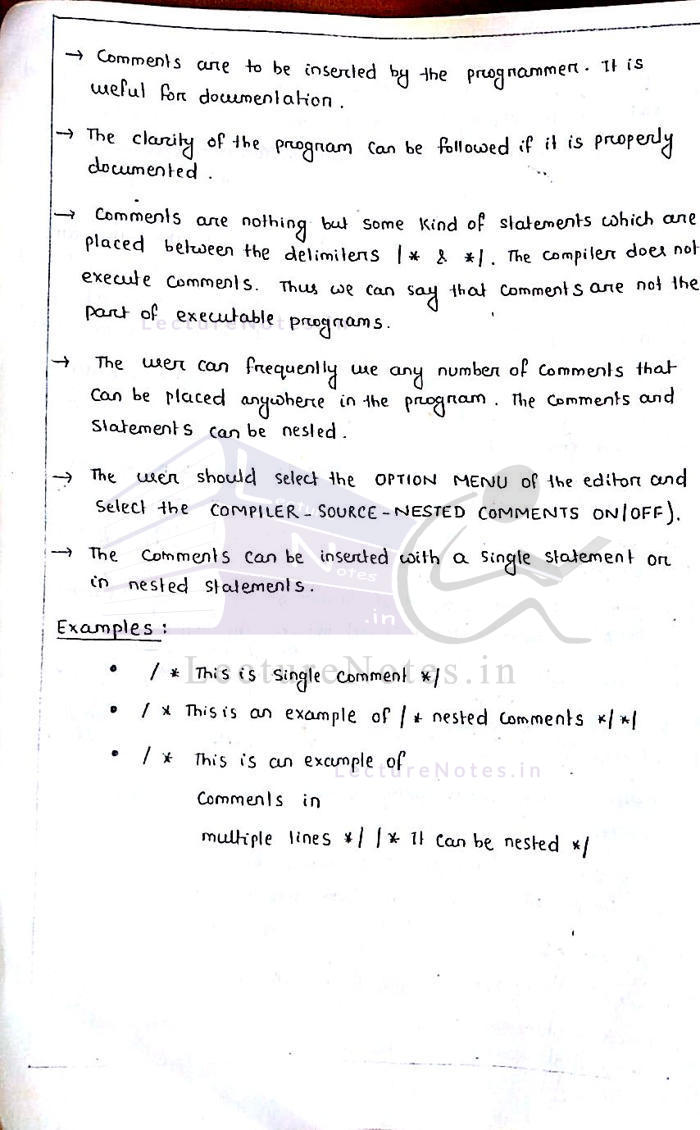 → Comments are to be inserted by the programmer. It is
useful for documentation.
→ The clarity of the program can be followed if it is properly
documented.
→ Comments are nothing but some kind of statements which are
placed between the delimiters /* & */. The compiler does not
execute comments. Thus we can say that comments are not the
part of executable programs.
LectureNotes.in
→ The user can frequently use any number of comments that
can be placed anywhere in the program. The comments and
statements can be nested.
→ The user should select the OPTION MENU of the editor and
select the COMPILER-SOURCE-NESTED COMMENTS ON/OFF).
Lecture
Notes
.in
→ The comments can be inserted with a single statement or
in nested statements.
Examples:
LectureNotes.in
• /* This is single comment */
• /* This is an example of /* nested comments */ */
• /* This is an example of
LectureNotes.in
Comments in
multiple lines */ /* It can be nested */